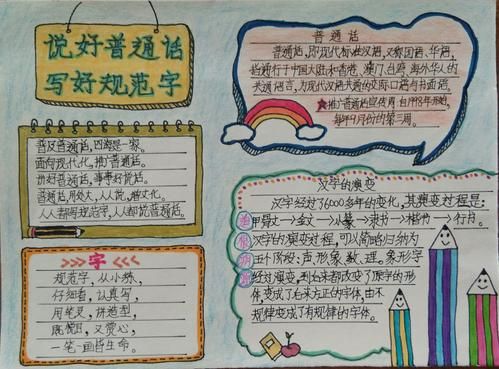 说好普通话
写好规范字
普通话
普通话，即现代标准汉语，又称国语、华语，
普通行于中国大陆和香港、澳门、台湾、海外华人的
共通语言，为现代汉语共通的交际口语与书面语。
推广普通话宣传周自1998年开始，
每年9月份的第三周。
普及普通话，四海是一家。
面向现代化，推广普通话。
讲好普通话，
普通话，人人说，
人人都写规范字，人人都说普通话。
字
规范字，从小练，
仔细看，认真写，
用笔灵，讲造型，
既悦目，又赏心，
一笔一画皆生命。
汉字的演变
汉字经过了6000多年的变化，其演变过程是：
甲骨文→金文→小篆→隶书→楷书→行书。
汉字的演变过程，可以简略归纳为
五个阶段：声、形、象、数、理。象形字
经过演变，到后来都改变了原字的形
体，变成了后来方正的字体，由不
规律变成了有规律的字体。